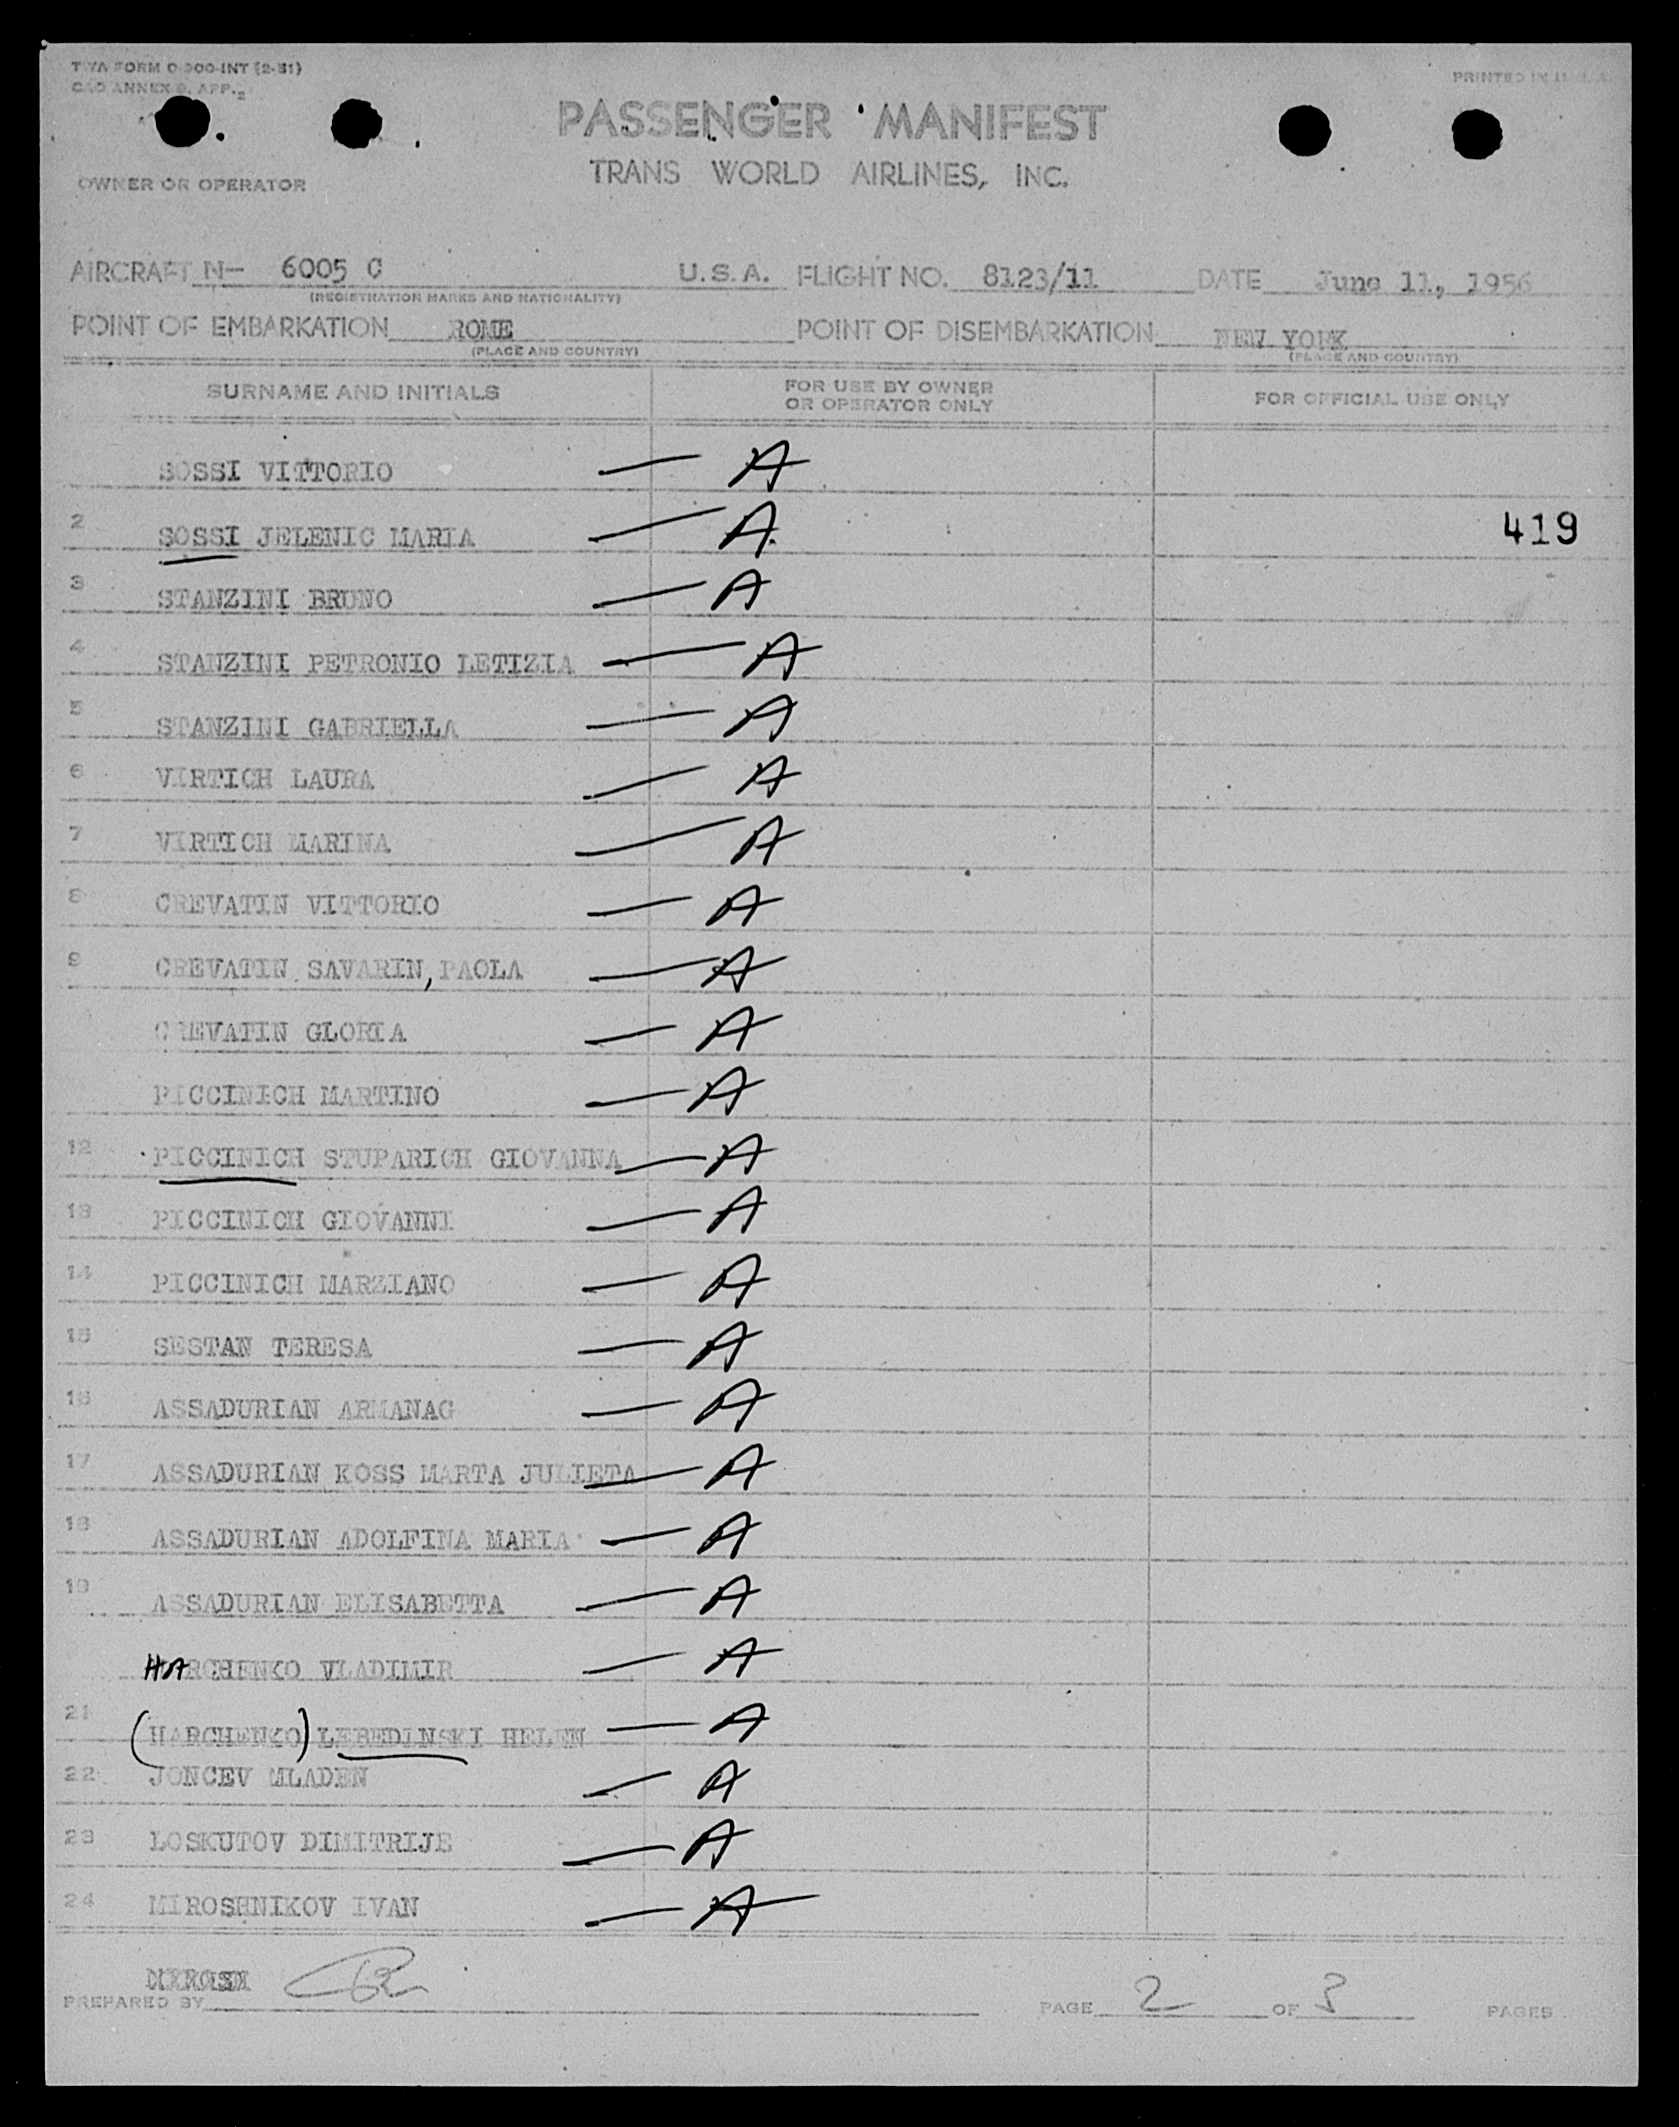 TWA FORM O-300-INT (2-51)
PRINTED IN U.S.A.
CAO ANNEX 9, APP. 2
PASSENGER MANIFEST
TRANS WORLD AIRLINES, INC.
OWNER OR OPERATOR
AIRCRAFT N- 6005 C U.S.A. FLIGHT NO. 8123/11 DATE June 11, 1956
(REGISTRATION MARKS AND NATIONALITY)
POINT OF EMBARKATION ROME POINT OF DISEMBARKATION NEW YORK
(PLACE AND COUNTRY) (PLACE AND COUNTRY)
SURNAME AND INITIALS FOR USE BY OWNER OR OPERATOR ONLY FOR OFFICIAL USE ONLY
SOSSI VITTORIO — A
2 SOSSI JELENIC MARIA — A 419
3 STANZINI BRUNO — A
4 STANZINI PETRONIO LETIZIA — A
5 STANZINI GABRIELLA — A
6 VIRTICH LAURA — A
7 VIRTICH MARINA — A
8 CREVATIN VITTORIO — A
9 CREVATIN SAVARIN, PAOLA — A
CREVATIN GLORIA — A
PICCINICH MARTINO — A
12 PICCINICH STUPARICH GIOVANNA — A
13 PICCINICH GIOVANNI — A
14 PICCINICH MARZIANO — A
15 SESTAN TERESA — A
16 ASSADURIAN ARMANAG — A
17 ASSADURIAN KOSS MARTA JULIETA — A
18 ASSADURIAN ADOLFINA MARIA — A
19 ASSADURIAN ELISABETTA — A
HARCHENKO VLADIMIR — A
21 (HARCHENKO) LEBEDINSKI HELEN — A
22 JONCEV MLADEN — A
23 LOSKUTOV DIMITRIJE — A
24 MIROSHNIKOV IVAN — A
PREPARED BY PAGE 2 OF 3 PAGES